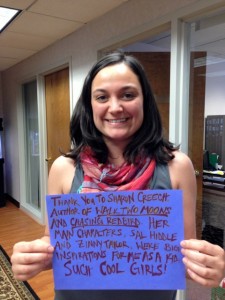 THANK YOU TO SHARON CREECH
AUTHOR OF WALK TWO MOONS
AND CHASING REDBIRD. HER
MAIN CHARACTERS, SAL HIDDLE
AND ZINNY TAYLOR, WERE BIG
INSPIRATIONS FOR ME AS A KID.
SUCH COOL GIRLS!